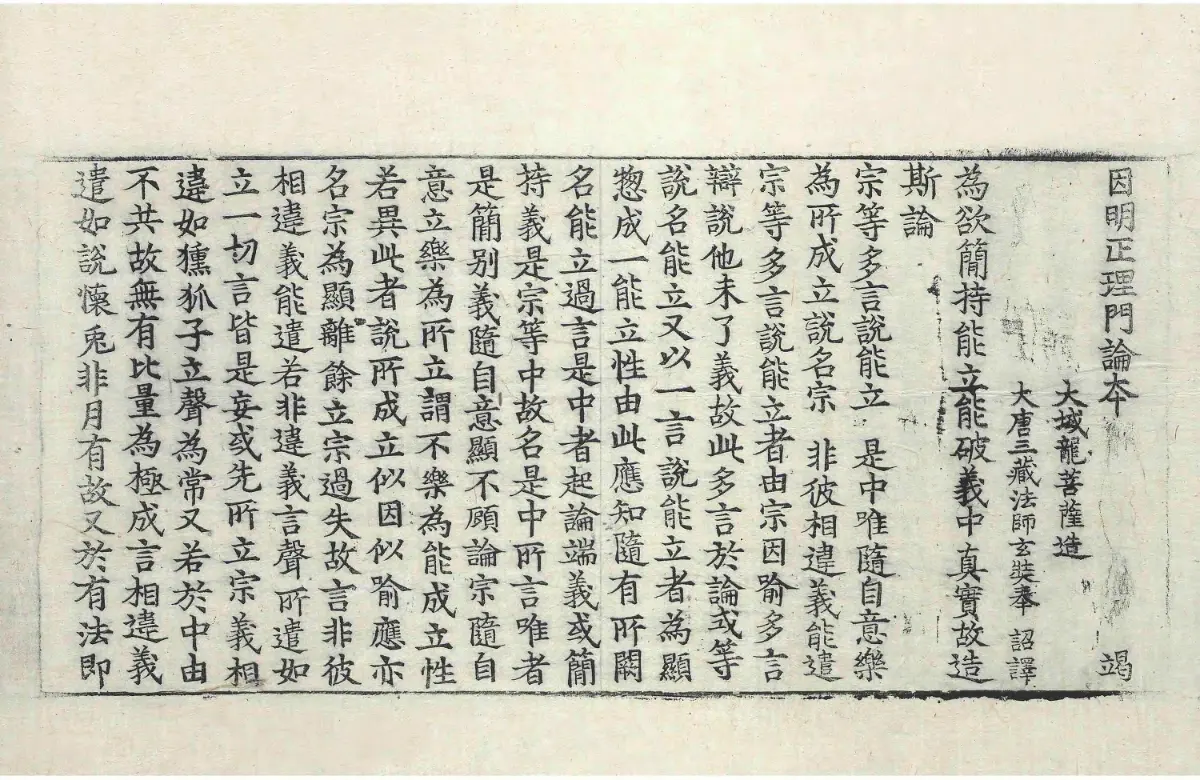 因明正理門論本 竭
大域龍菩薩造
大唐三藏法師玄奘奉 詔譯
為欲簡持能立能破義中真實故造
斯論
宗等多言說能立 是中唯隨自意樂
為所成立說名宗 非彼相違義能遣
宗等多言說能立者由宗因喻多言
辯說他未了義故此多言於論或等
說名能立又以一言說能立者為顯
惣成一能立性由此應知隨有所闕
名能立過言是中者起論端義或簡
持義是宗等中故名是中所言唯者
是簡別義隨自意顯不顧論宗隨自
意立樂為所立謂不樂為能成立性
若異此者說所成立似因似喻應亦
名宗為顯離餘立宗過失故言非彼
相違義能遣若非違義言聲所遣如
立一切言皆是妄或先所立宗義相
違如獯狐子立聲為常又若於中由
不共故無有比量為極成言相違義
遣如說懷兎非月有故又於有法即